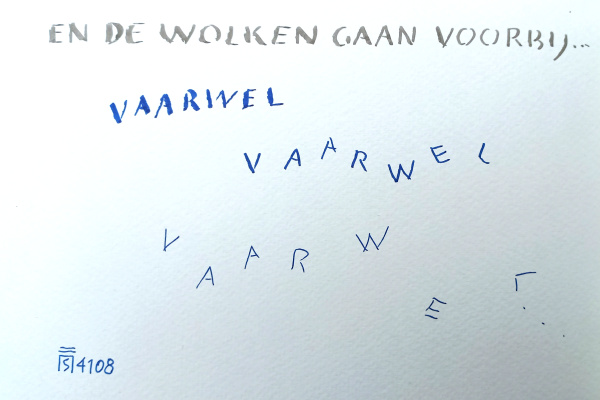 EN DE WOLKEN GAAN VOORBIJ...
VAARWEL
VAARWEL
VAARWEL...
4108